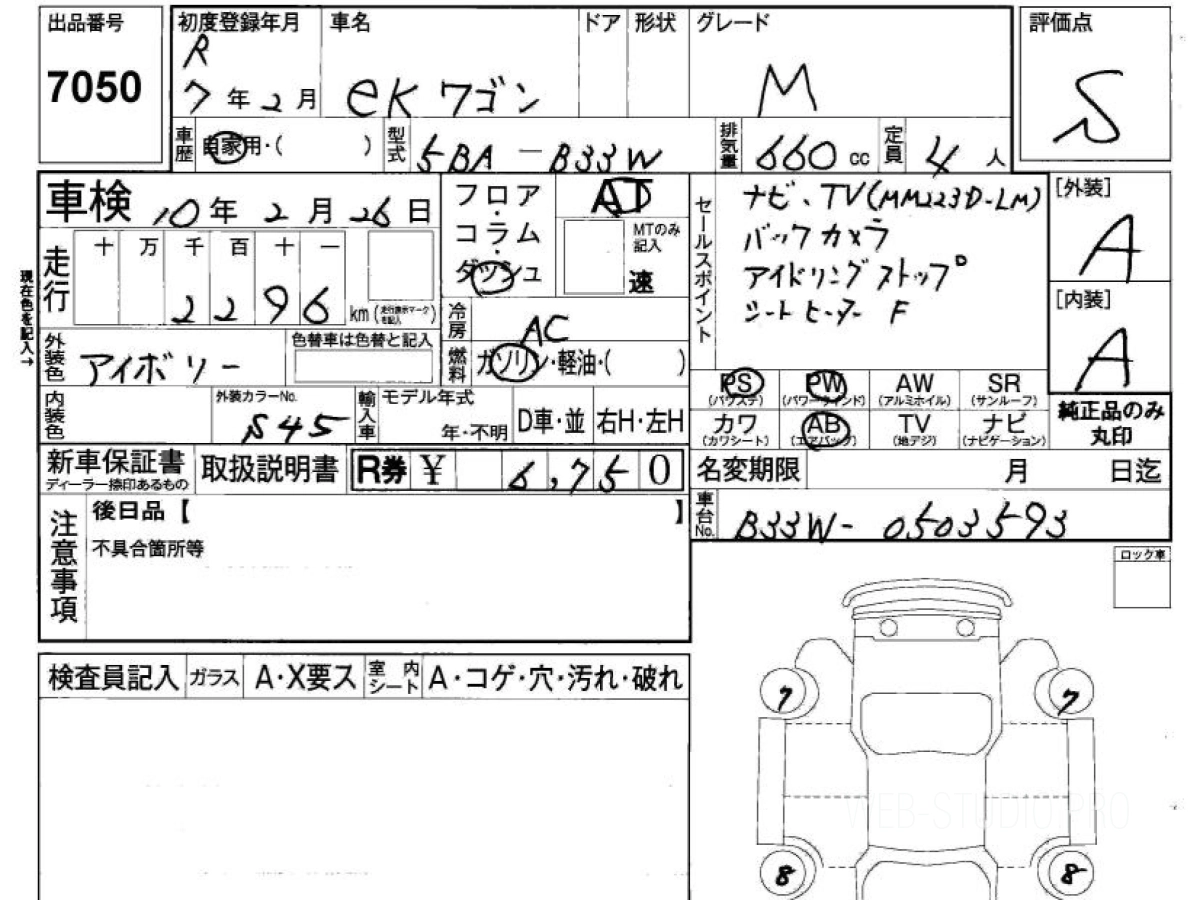 出品番号
7050
初度登録年月
R
7年2月
車名
eKワゴン
ドア
形状
グレード
M
評価点
S
車歴
自家用・( )
型式
5BA-B33W
排気量
660cc
定員
4人
車検
10年2月26日
フロア・コラム・ダッシュ
AT
MTのみ記入
速
セールスポイント
ナビ、TV(MM223D-LM)
バックカメラ
アイドリングストップ
シートヒーター F
[外装]
A
[内装]
A
現在色を記入→
走行
十 万 千 百 十 一
2 2 9 6
km (走行表示マークを記入)
冷房
AC
外装色
アイボリー
色替車は色替と記入
燃料
ガソリン・軽油・( )
PS
(パワステ)
PW
(パワーウインド)
AW
(アルミホイル)
SR
(サンルーフ)
カワ
(カワシート)
AB
(エアバッグ)
TV
(地デジ)
ナビ
(ナビゲーション)
純正品のみ
丸印
内装色
外装カラーNo.
S45
輸入車
モデル年式
年・不明
D車・並
右H・左H
新車保証書
ディーラー捺印あるもの
取扱説明書
R券
¥ 6,750
名変期限
月 日迄
車台No.
B33W-0503593
注意事項
後日品【 】
不具合箇所等
ロック車
検査員記入
ガラス
A・X要ス
室内シート
A・コゲ・穴・汚れ・破れ
7
7
WEB-STUDIO.PRO
8
8